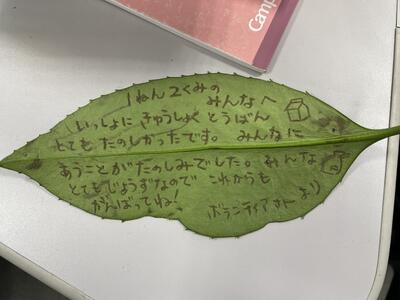 Camp
1ねん2くみの
みんなへ
いっしょに きゅうしょく とうばん
とても たのしかったです。 みんなに
あうことが たのしみでした。 みんな
とても じょうずなので これからも
がんばってね!
ボランティア より